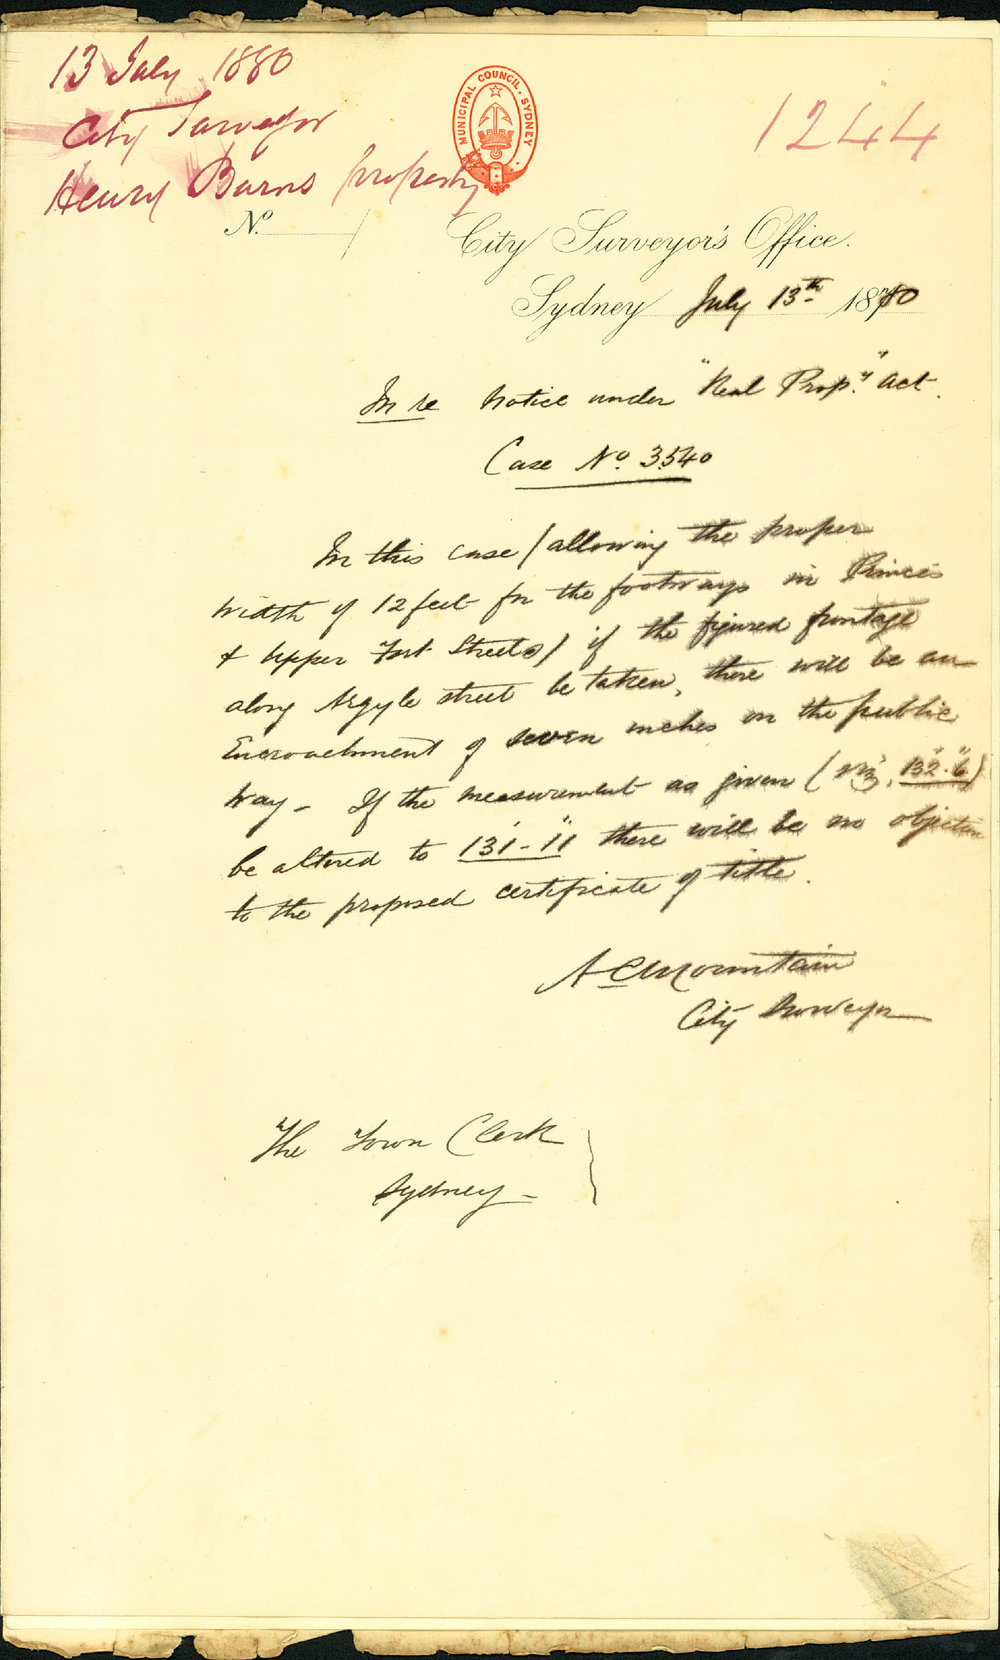 13 July 1880
City Surveyor
Henry Burns property
1244
MUNICIPAL COUNCIL. SYDNEY.
No.
City Surveyor's Office.
Sydney July 13th 1880
In re Notice under "Real Propy" Act.
Case No 3540
In this case (allowing the proper
width of 12 feet for the footways in Princes
& Upper Fort Streets) if the figured frontage
along Argyle street be taken, there will be an
Encroachment of seven inches on the public
way - If the measurement as given (viz, 132'.6")
be altered to 131'-11" there will be no objection
to the proposed certificate of title.
A C Mountain
City Surveyor
The Town Clerk
Sydney -